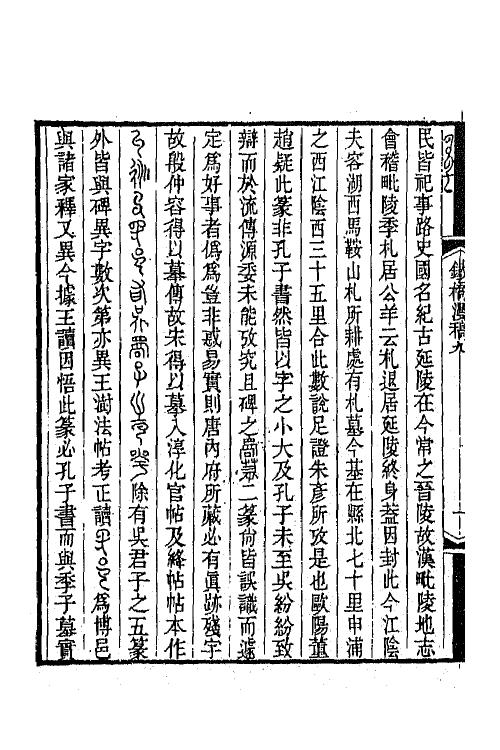 民皆祀事路史國名紀古延陵在今常之晉陵故漢毗陵地志
會稽毗陵季札居公羊云札退居延陵終身葢因封此今江陰
夫客湖西馬鞍山札所耕處有札墓今墓在縣北七十里申浦
之西江陰西三十五里合此數說足證朱彥所攷是也歐陽董
趙疑此篆非孔子書然皆以字之小大及孔子未至吳紛紛致
辯而於流傳源委未能攷究且碑之二篆尙皆誤識而遽
定爲好事者僞爲豈非惑易實則唐內府所藏必有眞跡殘字
故殷仲容得以摹傳故朱得以摹入淳化官帖及絳帖帖本作
除有吳君子之五篆
外皆與碑異字數次第亦異王澍法帖考正讀爲博邑
與諸家釋又異今據王讀因悟此篆必孔子書而與季子墓實
鐵橋漫稿九